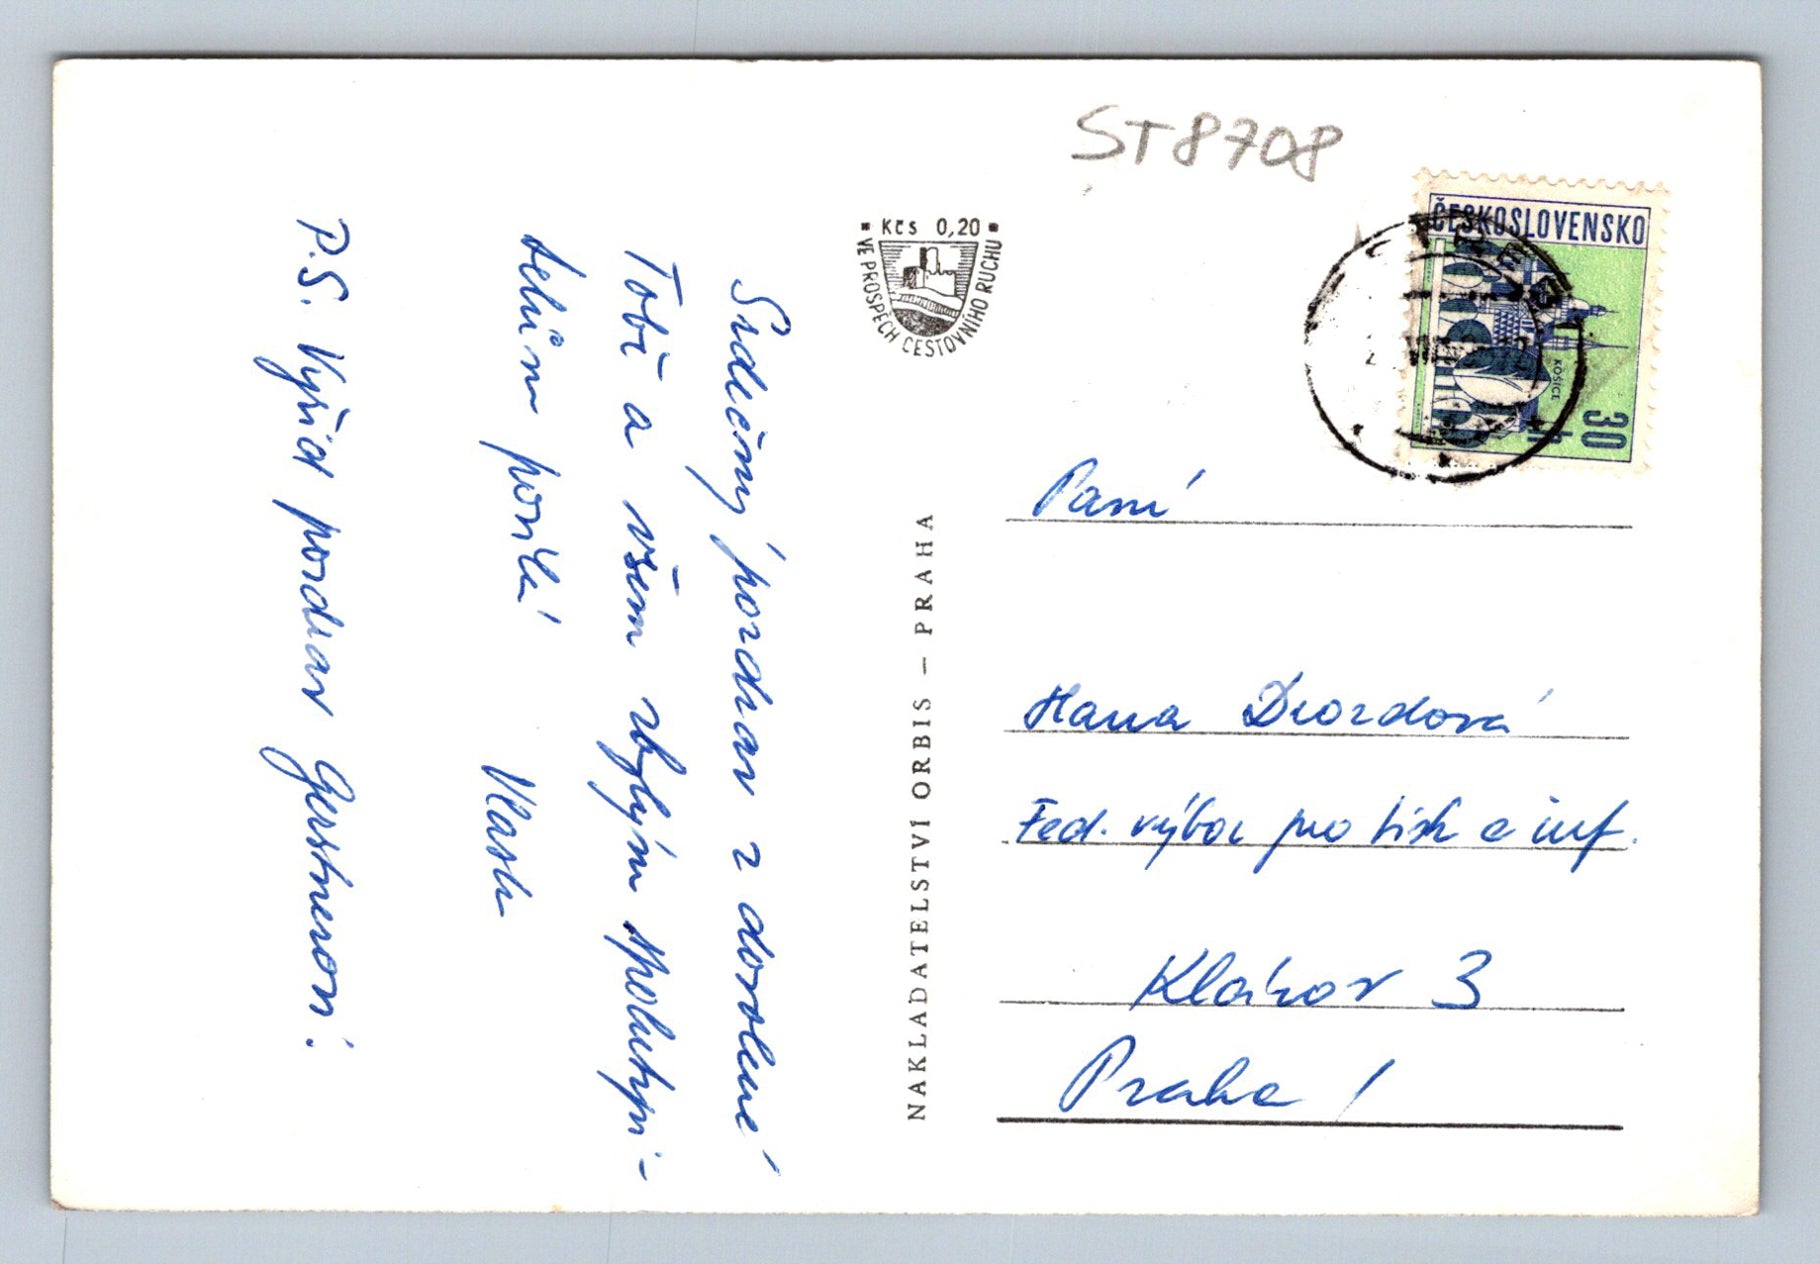 Srdečný pozdrav z dovolené
Tobě a všem zbylým spolutrpi-
telům posílá
Vlasta
P.S. Vyřiď pozdrav Gerstnerovi!
ST8708
Kčs 0,20
VE PROSPĚCH CESTOVNÍHO RUCHU
NAKLADATELSTVÍ ORBIS – PRAHA
ČESKOSLOVENSKO
KOŠICE
30 h
Paní
Hana Drozdová
Fed. výbor pro tisk a inf.
Klárov 3
Praha 1